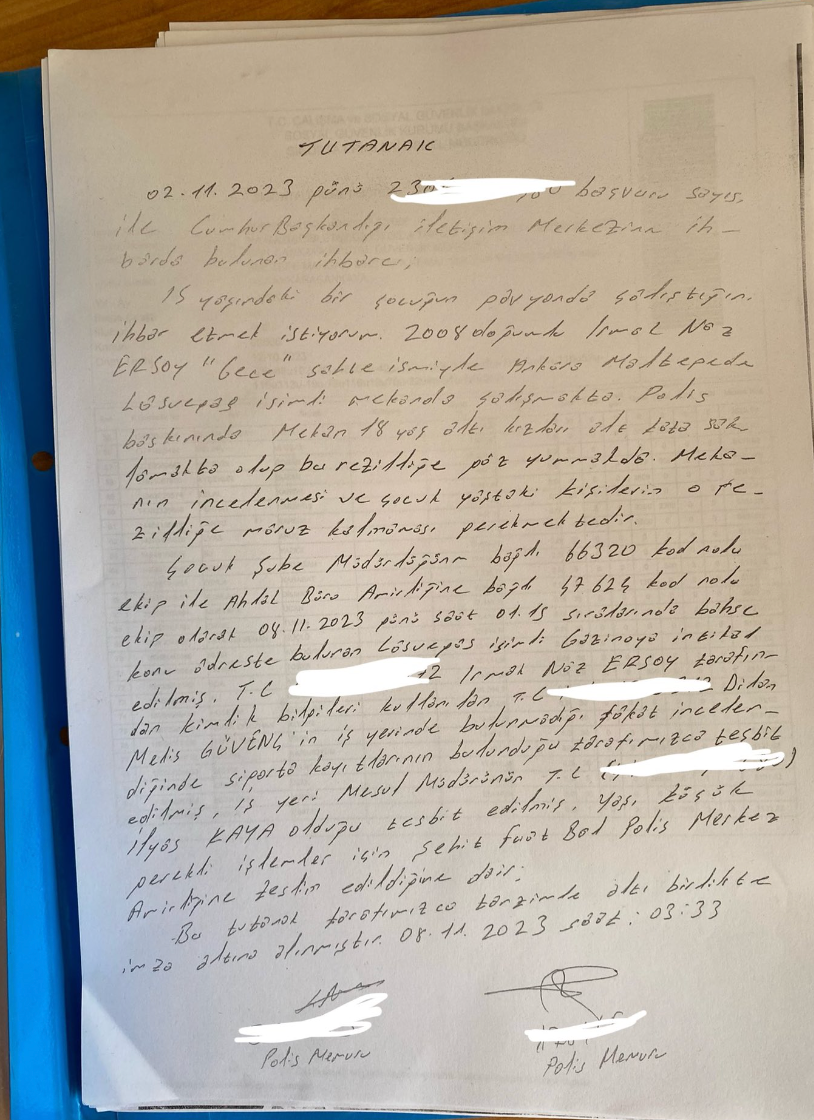 TUTANAK
02.11.2023 günü 230 başvuru sayısı
ile CumhurBaşkanlığı iletişim Merkezine ih-
barda bulunan ihbarcı;
15 yaşındaki bir çocuğun pavyonda çalıştığını
ihbar etmek istiyorum. 2008 doğumlu Irmak Naz
ERSOY "Gece" sahne ismiyle Ankara Maltepede
Lasvegas isimli mekanda çalışmakta. Polis
baskınında Mekan 18 yaş altı kızları alt kata sak-
lamakta olup bu rezilliğe göz yummakda. Meka-
nın incelenmesi ve çocuk yaştaki kişilerin o re-
zilliğe maruz kalmaması gerekmektedir.
Çocuk Şube Müdürlüğüne bağlı 66320 kod nolu
ekip ile Ahlak Büro Amirliğine bağlı 47624 kod nolu
ekip olarak 08.11.2023 günü saat 01.15 sıralarında bahse
konu adreste bulunan Lasvegas isimli Gazinoya intikal
edilmiş. T.C 12 Irmak Naz ERSOY tarafın-
dan kimlik bilgileri kullanılan T.C Dilan
Melis GÜVENÇ'in iş yerinde bulunmadığı fakat incelen-
diğinde sigorta kayıtlarının bulunduğu tarafımızca tesbit
edilmiş, iş yeri Mesul Müdürünün T.C
İlyas KAYA olduğu tesbit edilmiş. Yaşı küçük
gerekli işlemler için Şehit Fuat Bal Polis Merkez
Amirliğine teslim edildiğine dair;
Bu tutanak tarafımızca tanzimle altı birlikte
imza altına alınmıştır. 08.11.2023 saat: 03:33
Polis Memuru
Polis Memuru